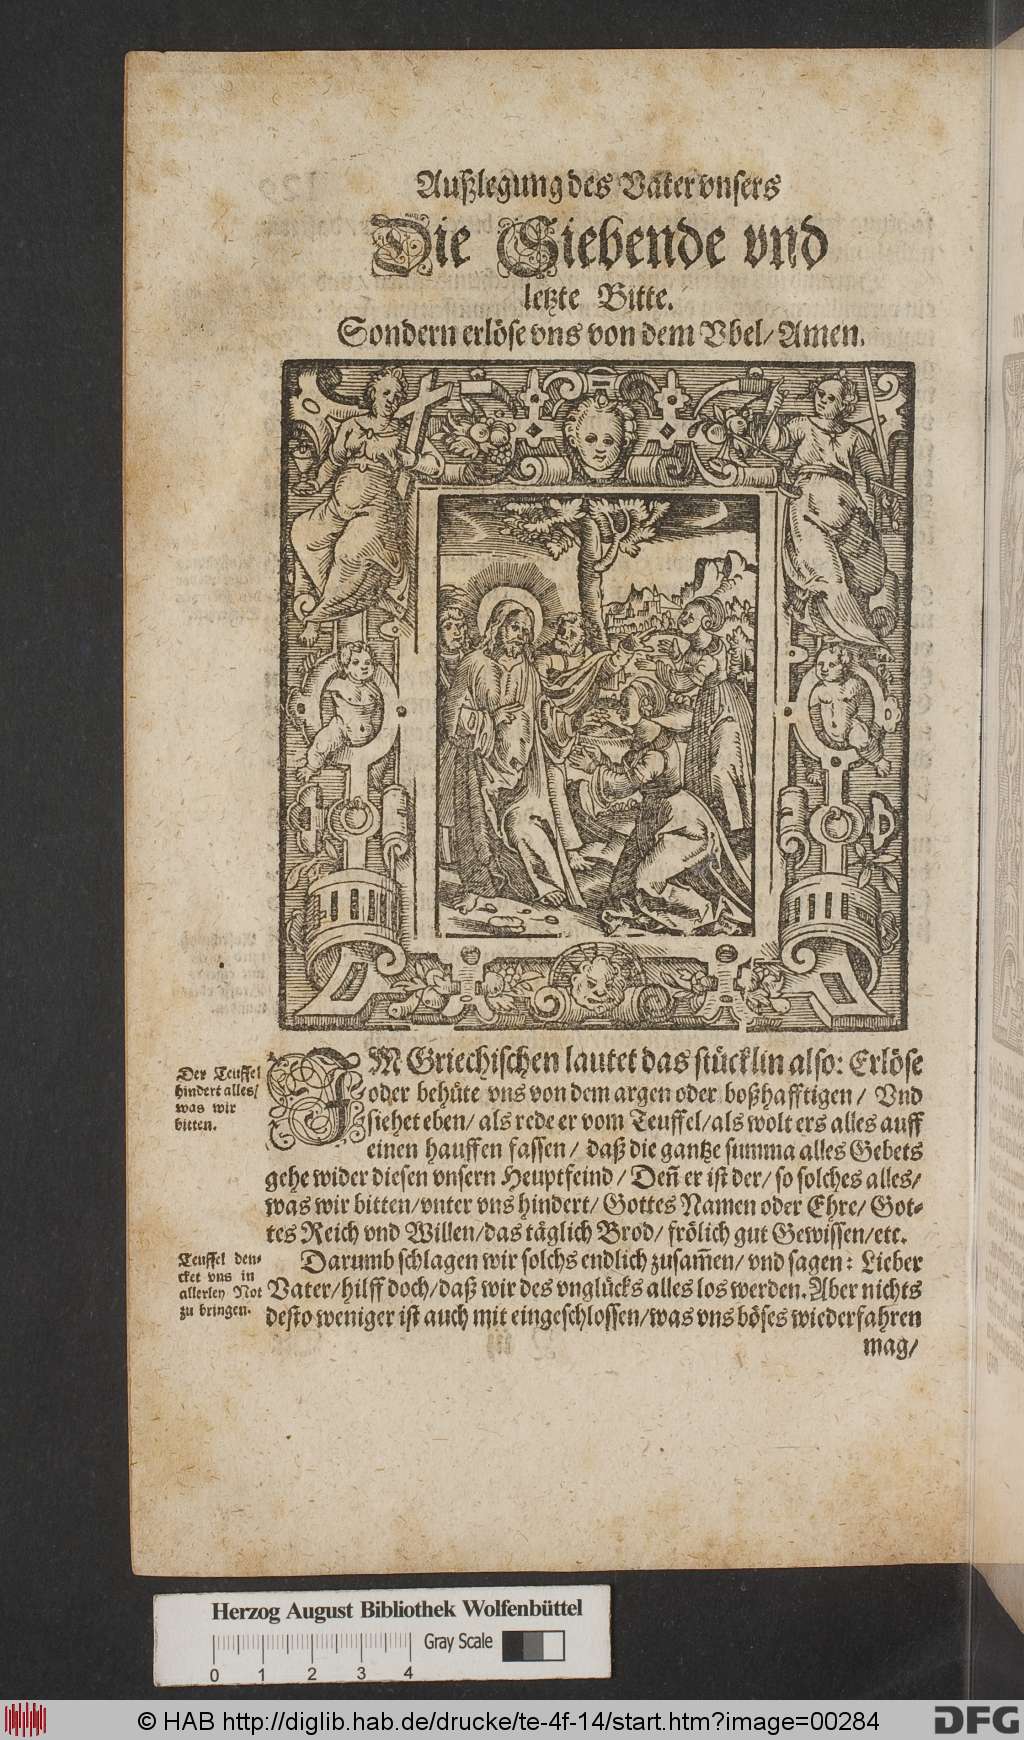 Außlegung des Vater vnsers
Die Siebende vnd
letzte Bitte.
Sondern erlöse vns von dem Vbel/ Amen.
Der Teuffel
hindert alles/
was wir
bitten.
IM Griechischen lautet das stücklin also: Erlöse
oder behüte vns von dem argen oder boßhafftigen/ Vnd
siehet eben/ als rede er vom Teuffel/ als wolt ers alles auff
einen hauffen fassen/ daß die gantze summa alles Gebets
gehe wider diesen vnsern Heuptfeind/ Deñ er ist der/ so solches alles/
was wir bitten/ vnter vns hindert/ Gottes Namen oder Ehre/ Got-
tes Reich vnd Willen/ das täglich Brod/ frölich gut Gewissen/ etc.
Teuffel den-
cket vns in
allerley Not
zu bringen.
Darumb schlagen wir solchs endlich zusam̃en/ vnd sagen: Lieber
Vater/ hilff doch/ daß wir des vnglücks alles los werden. Aber nichts
desto weniger ist auch mit eingeschlossen/ was vns böses wiederfahren
mag/
Herzog August Bibliothek Wolfenbüttel
Gray Scale
0 1 2 3 4
© HAB http://diglib.hab.de/drucke/te-4f-14/start.htm?image=00284
DFG